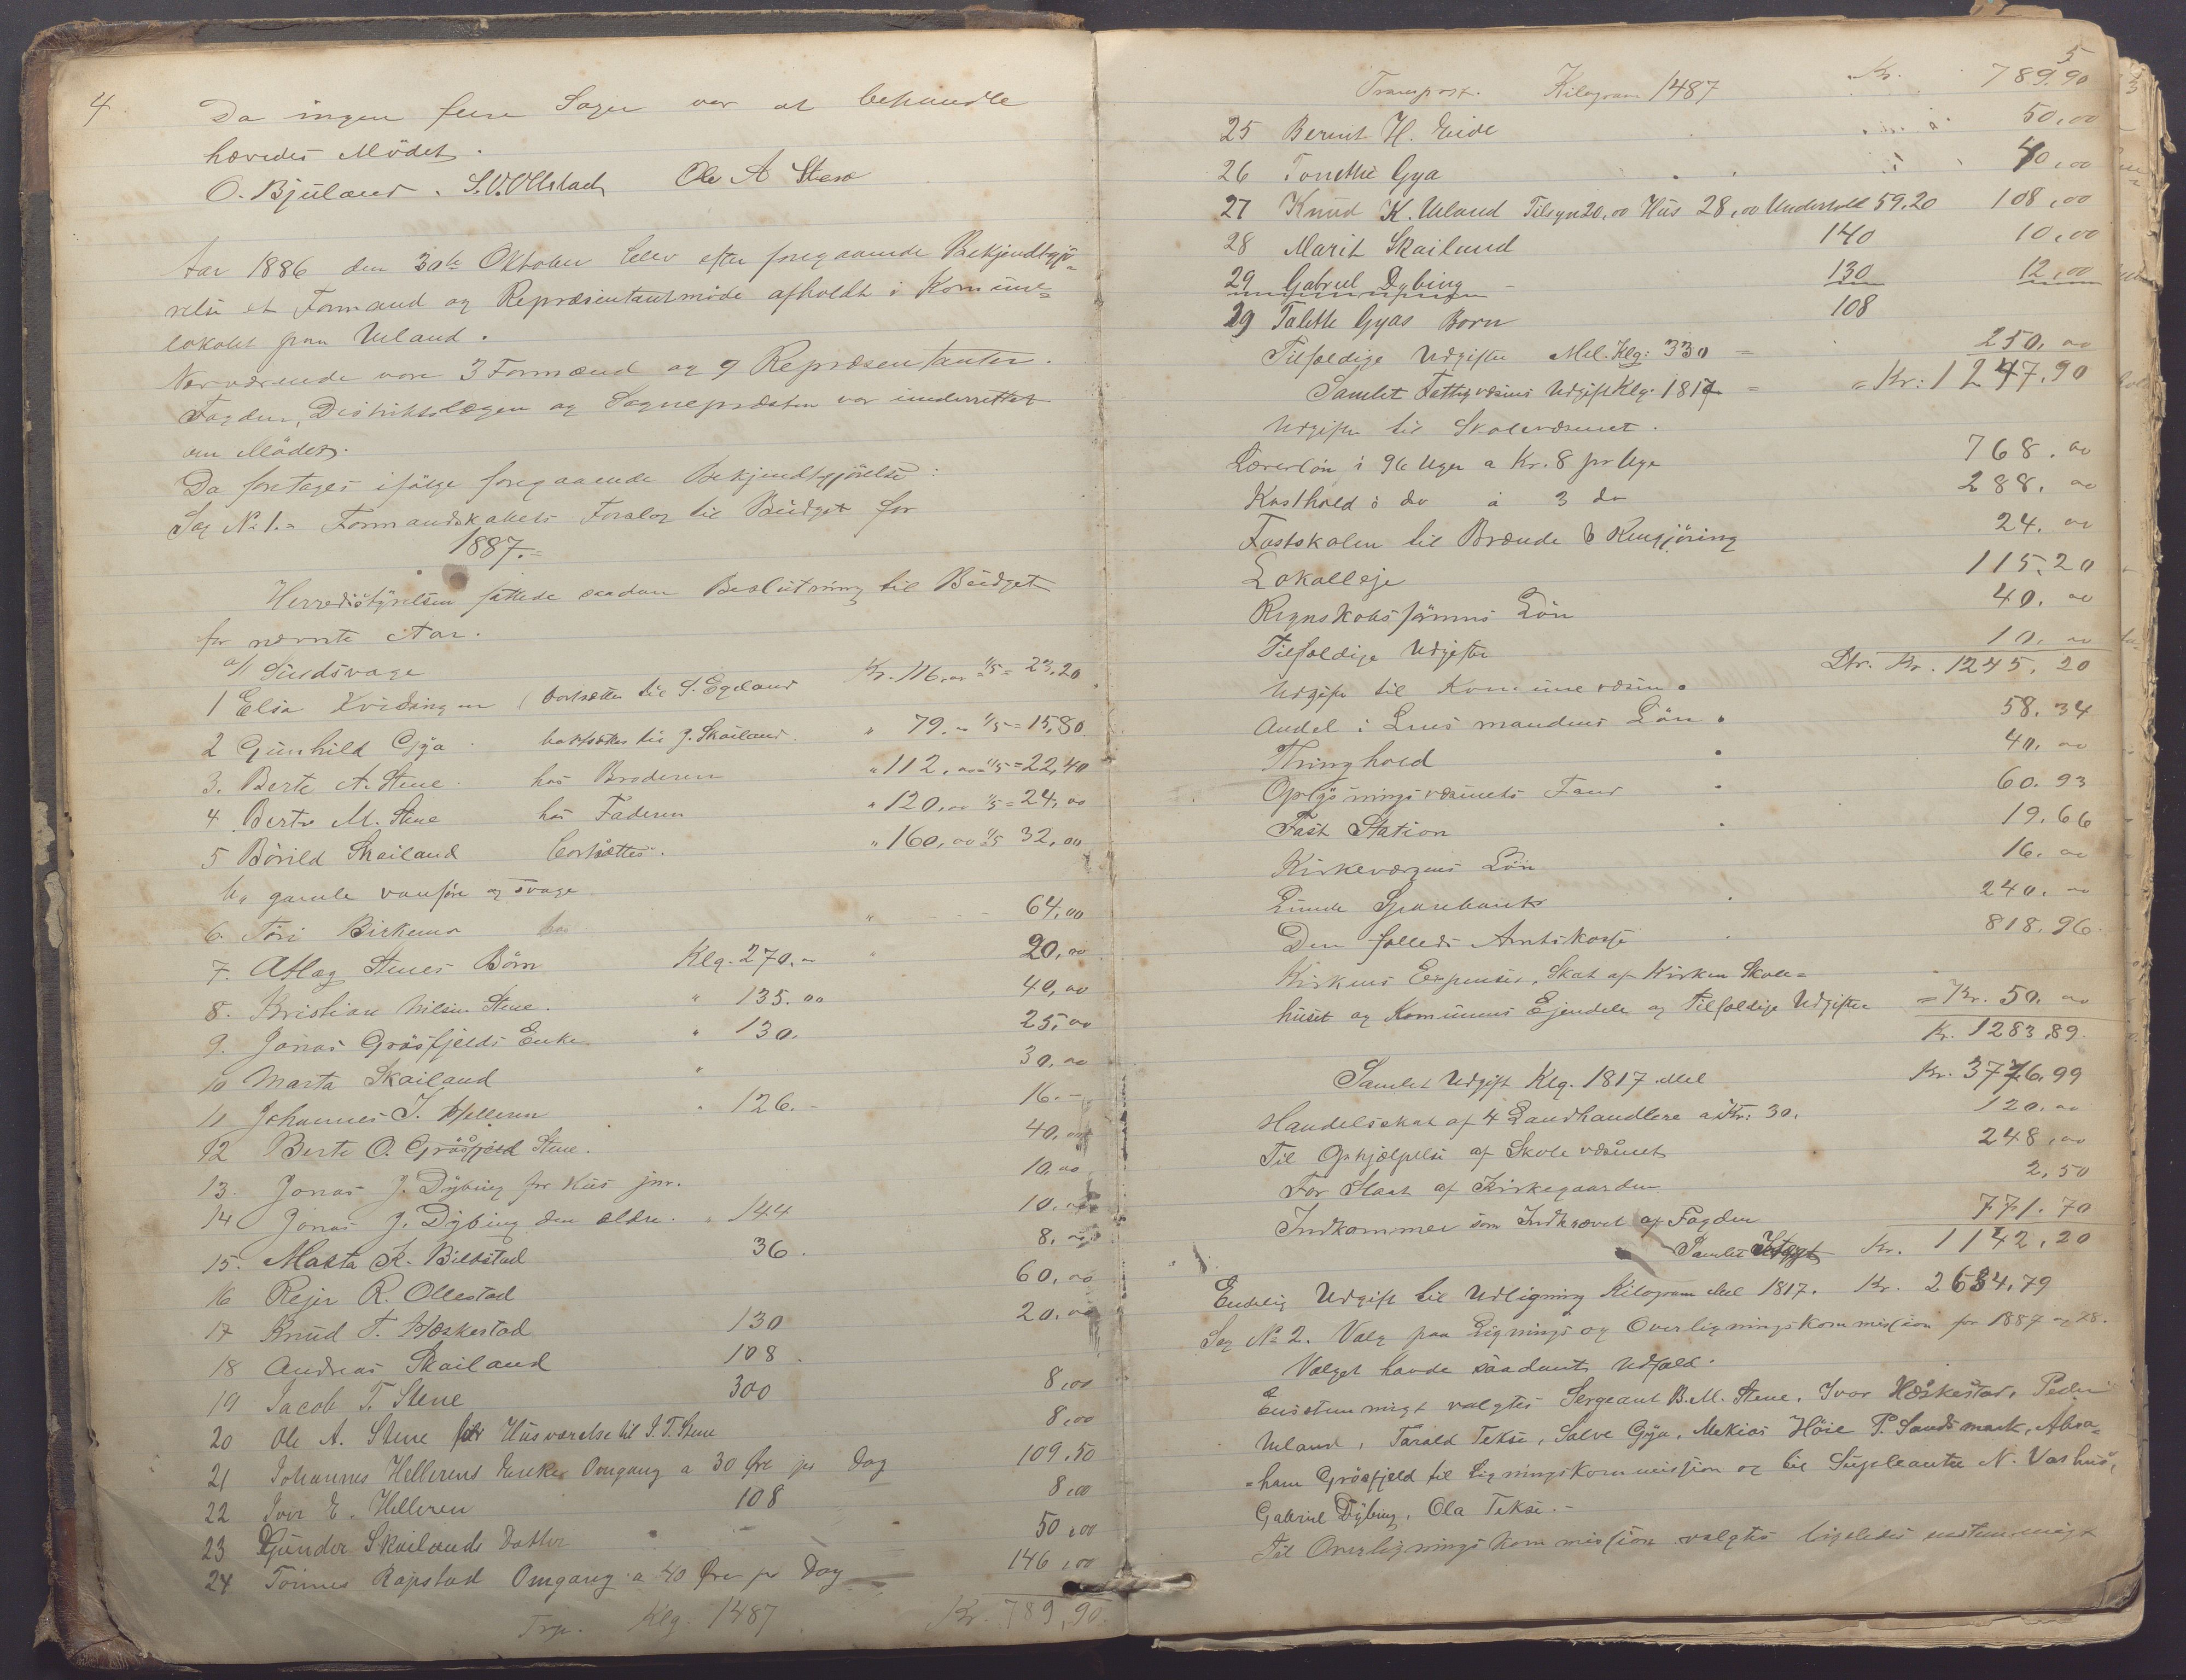 4
Da ingen flere Sager var at behandle
hævedes Mödet.
O. Bjuland. S. V. Ollestad Ole A Stene
Aar 1886 den 30te Oktober blev efter foregaaende Bekjendtgjö=
relse et Formand og Repræsentantmöde afholdt i Komune=
lokalet paa Ueland.
Nærværende vare 3 Formænd og 9 Repræsentanter.
Fogden, Distriktslægen og Sognepræsten var underrettet
om Mödet.
Da foretages ifölge foregaaende Bekjendtgjörelse:
Sag No 1.= Formandskabets Forslag til Budget for
1887.=
Herredsstyrelsen fattede saadan Beslutning til Budget
for nævnte Aar.
a/ Sindsvage
1 Elsa Kvidingen bortsættes til S. Egeland Kr. 116,00 1/5 = 23,20
2 Gunhild Gya bortsættes til J. Skailand. " 79.00 1/5 = 15,80
3. Berte A. Stene. hos Broderen " 112,00 1/5 = 22,40
4 Berte M. Stene hos Faderen " 120,00 1/5 = 24,00
5 Börild Skailand bortsættes. " 160,00 1/5 32,00
b, gamle vanföre og svage
6. Töri Birkemo hos " 64,00
7. Aslag Stenes Börn Klg. 270.00 " 20,00
8. Kristian Nilsen Stene. " 135.00 40,00
9. Jonas Gråsfjelds Enke " 130. 25,00
10 Marta Skailand " 30,00
11 Johannes J. Helleren " 126.- 16.-
12 Berte O. Gråsfjeld Stene. 40,00
13. Jonas J. Dybing for Hus jnr. 10.00
14 Jonas J. Dybing den eldre. " 144 10,00
15. Marta K. Bilstad 36. 8,00
16 Rejer R. Ollestad 60,00
17 Knud T. Hæskestad 130 20,00
18 Andreas Skailand 108.
19 Jacob T. Stene 300 8,00
20 Ole A. Stene for Husværelse til J. T. Stene 8,00
21 Johannes Hellerens Enke Omgang a 30 Øre pr Dag 109,50
22 Iver E. Helleren 108 8,00
23 Gunder Skailands Datter 50,00
24 Tönnes Rapstad Omgang a 40 Øre pr Dag 146,00
Trp. Klg. 1487 Kr. 789,90.
5
Transport. Kilogram 1487 Kr. 789.90
25 Bernt H. Eide 50,00
26 Tonette Gya 40,00
27 Knud K. Ueland Tilsyn 20,00 Hus 28,00 Underhold 59.20 108,00
28 Marit Skailand 140 10,00
29 Gabriel Dybing 130 12,00
29 Talette Gyas Born 108
Tilfældige Udgifter Mel. Klg: 330 = 250,00
Samlet Fattigvæsens Udgift Klg. 1817 = Kr: 1247.90
Udgifter til Skolevæsenet.
Lærerlön i 96 Uger a Kr. 8 pr Uge 768.00
Kosthold i do à 3 do 288.00
Fastskolen til Brænde & Rengjöring 24.00
Lokalleje 115.20
Regnskabsförerens Lön 40.00
Tilfældige Udgifter 10.00
Str. Kr. 1245.20
Udgifter til Komunevæsen.
Andel i Lensmandens Lön. 58.34
Thinghold 40.00
Oplysningsvæsenets Fond 60.93
Fast Station 19.66
Kirkeværgens Lön 16.00
Lunde Sparebank 240.00
Den fælleds Amtskasse 818.96.
Kirkens Expenser, Skat af Kirken Skole=
huset og Komunens Ejendele og Tilfældige Udgifter = Kr. 50.00
Kr. 1283,89.
Samlet Udgift Klg. 1817 Mel Kr. 3776.99
Handelsskat af 4 Landhandlere a Kr: 30. 120.00
Til Ophjælpelse af Skolevæsenet 248,00
For Slaat af Kirkegaarden 2,50
Indkommer som Indkrævet af Fogden 771.70
Samlet Kr. 1142,20
Endelig Udgift til Udligning Kilogram Mel 1817. Kr. 2634,79
Sag No 2. Valg paa Lignings og Overligningskommission for 1887 og 88.
Valget havde saadant Udfald.
Eenstemmigt valgtes Sergeant B. M. Stene, Ivar Hæskestad, Peder
Ueland, Tarald Tekse, Salve Gya, Mekias Höie P. Sandsmark, Abra=
=ham Gråsfjeld til Ligningskommission og til Supleanter N. Vashus,
Gabriel Dybing, Ola Tekse.-
Til Overligningskommission valgtes ligeledes enstemmigt